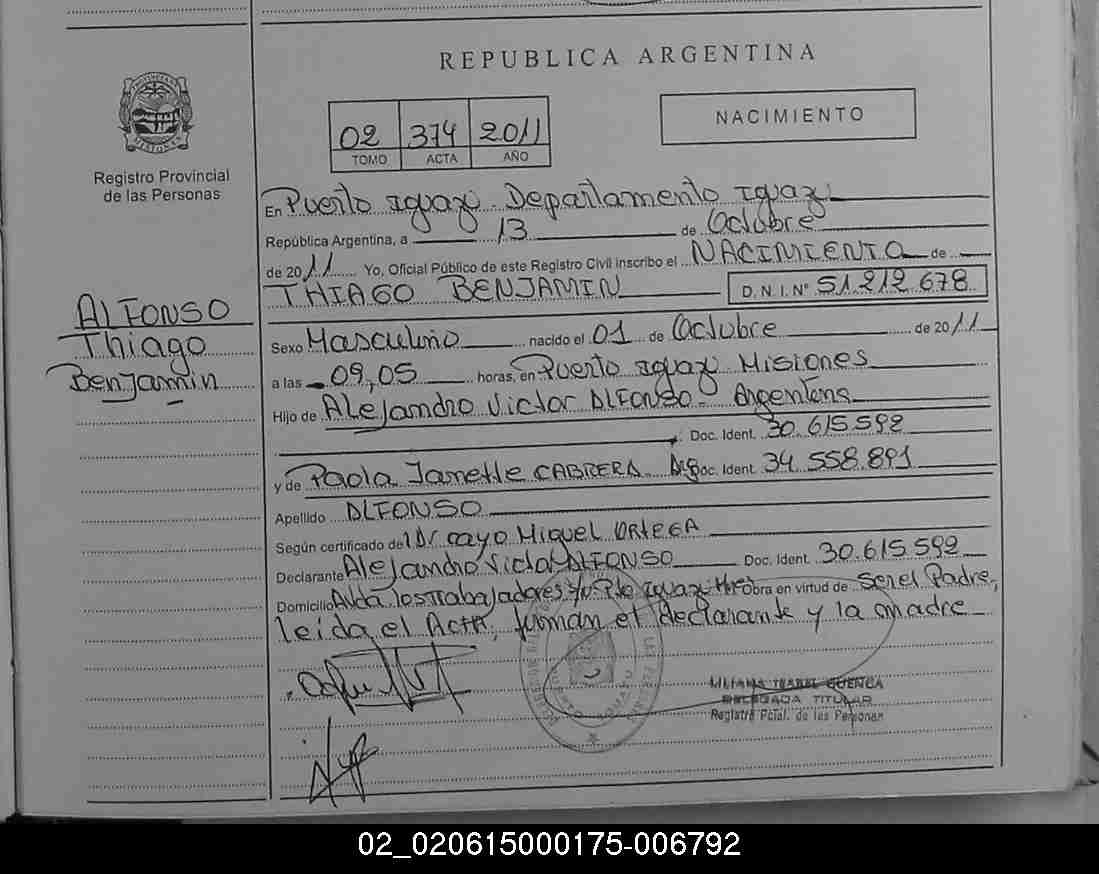 REPUBLICA ARGENTINA
02 374 2011
TOMO ACTA AÑO
NACIMIENTO
Registro Provincial
de las Personas
ALFONSO
Thiago
Benjamin
En Puerto Iguazu. Departamento Iguazu
República Argentina, a 13 de Octubre
de 2011 Yo, Oficial Público de este Registro Civil inscribo el NACIMIENTO de
THIAGO BENJAMIN D. N. I. N° 51.212.678
Sexo Masculino nacido el 01 de Octubre de 2011
a las 09,05 horas, en Puerto Iguazu Misiones
Hijo de Alejandro Victor ALFONSO- Argentina
Doc. Ident. 30.615.592
y de Paola Janette CABRERA Arg Doc. Ident. 34.558.891
Apellido ALFONSO
Según certificado de Dr Cayo Miguel ORTEGA
Declarante Alejandro Victor ALFONSO Doc. Ident. 30.615.592
Domicilio Avda los trabajadores s/n Pto Iguazu Mnes Obra en virtud de Ser el Padre,
leida el Acta, firman el declarante y la madre
LILIANA ISABEL CUENCA
DELEGADA TITULAR
Registro Pcial. de las Personas
02_020615000175-006792